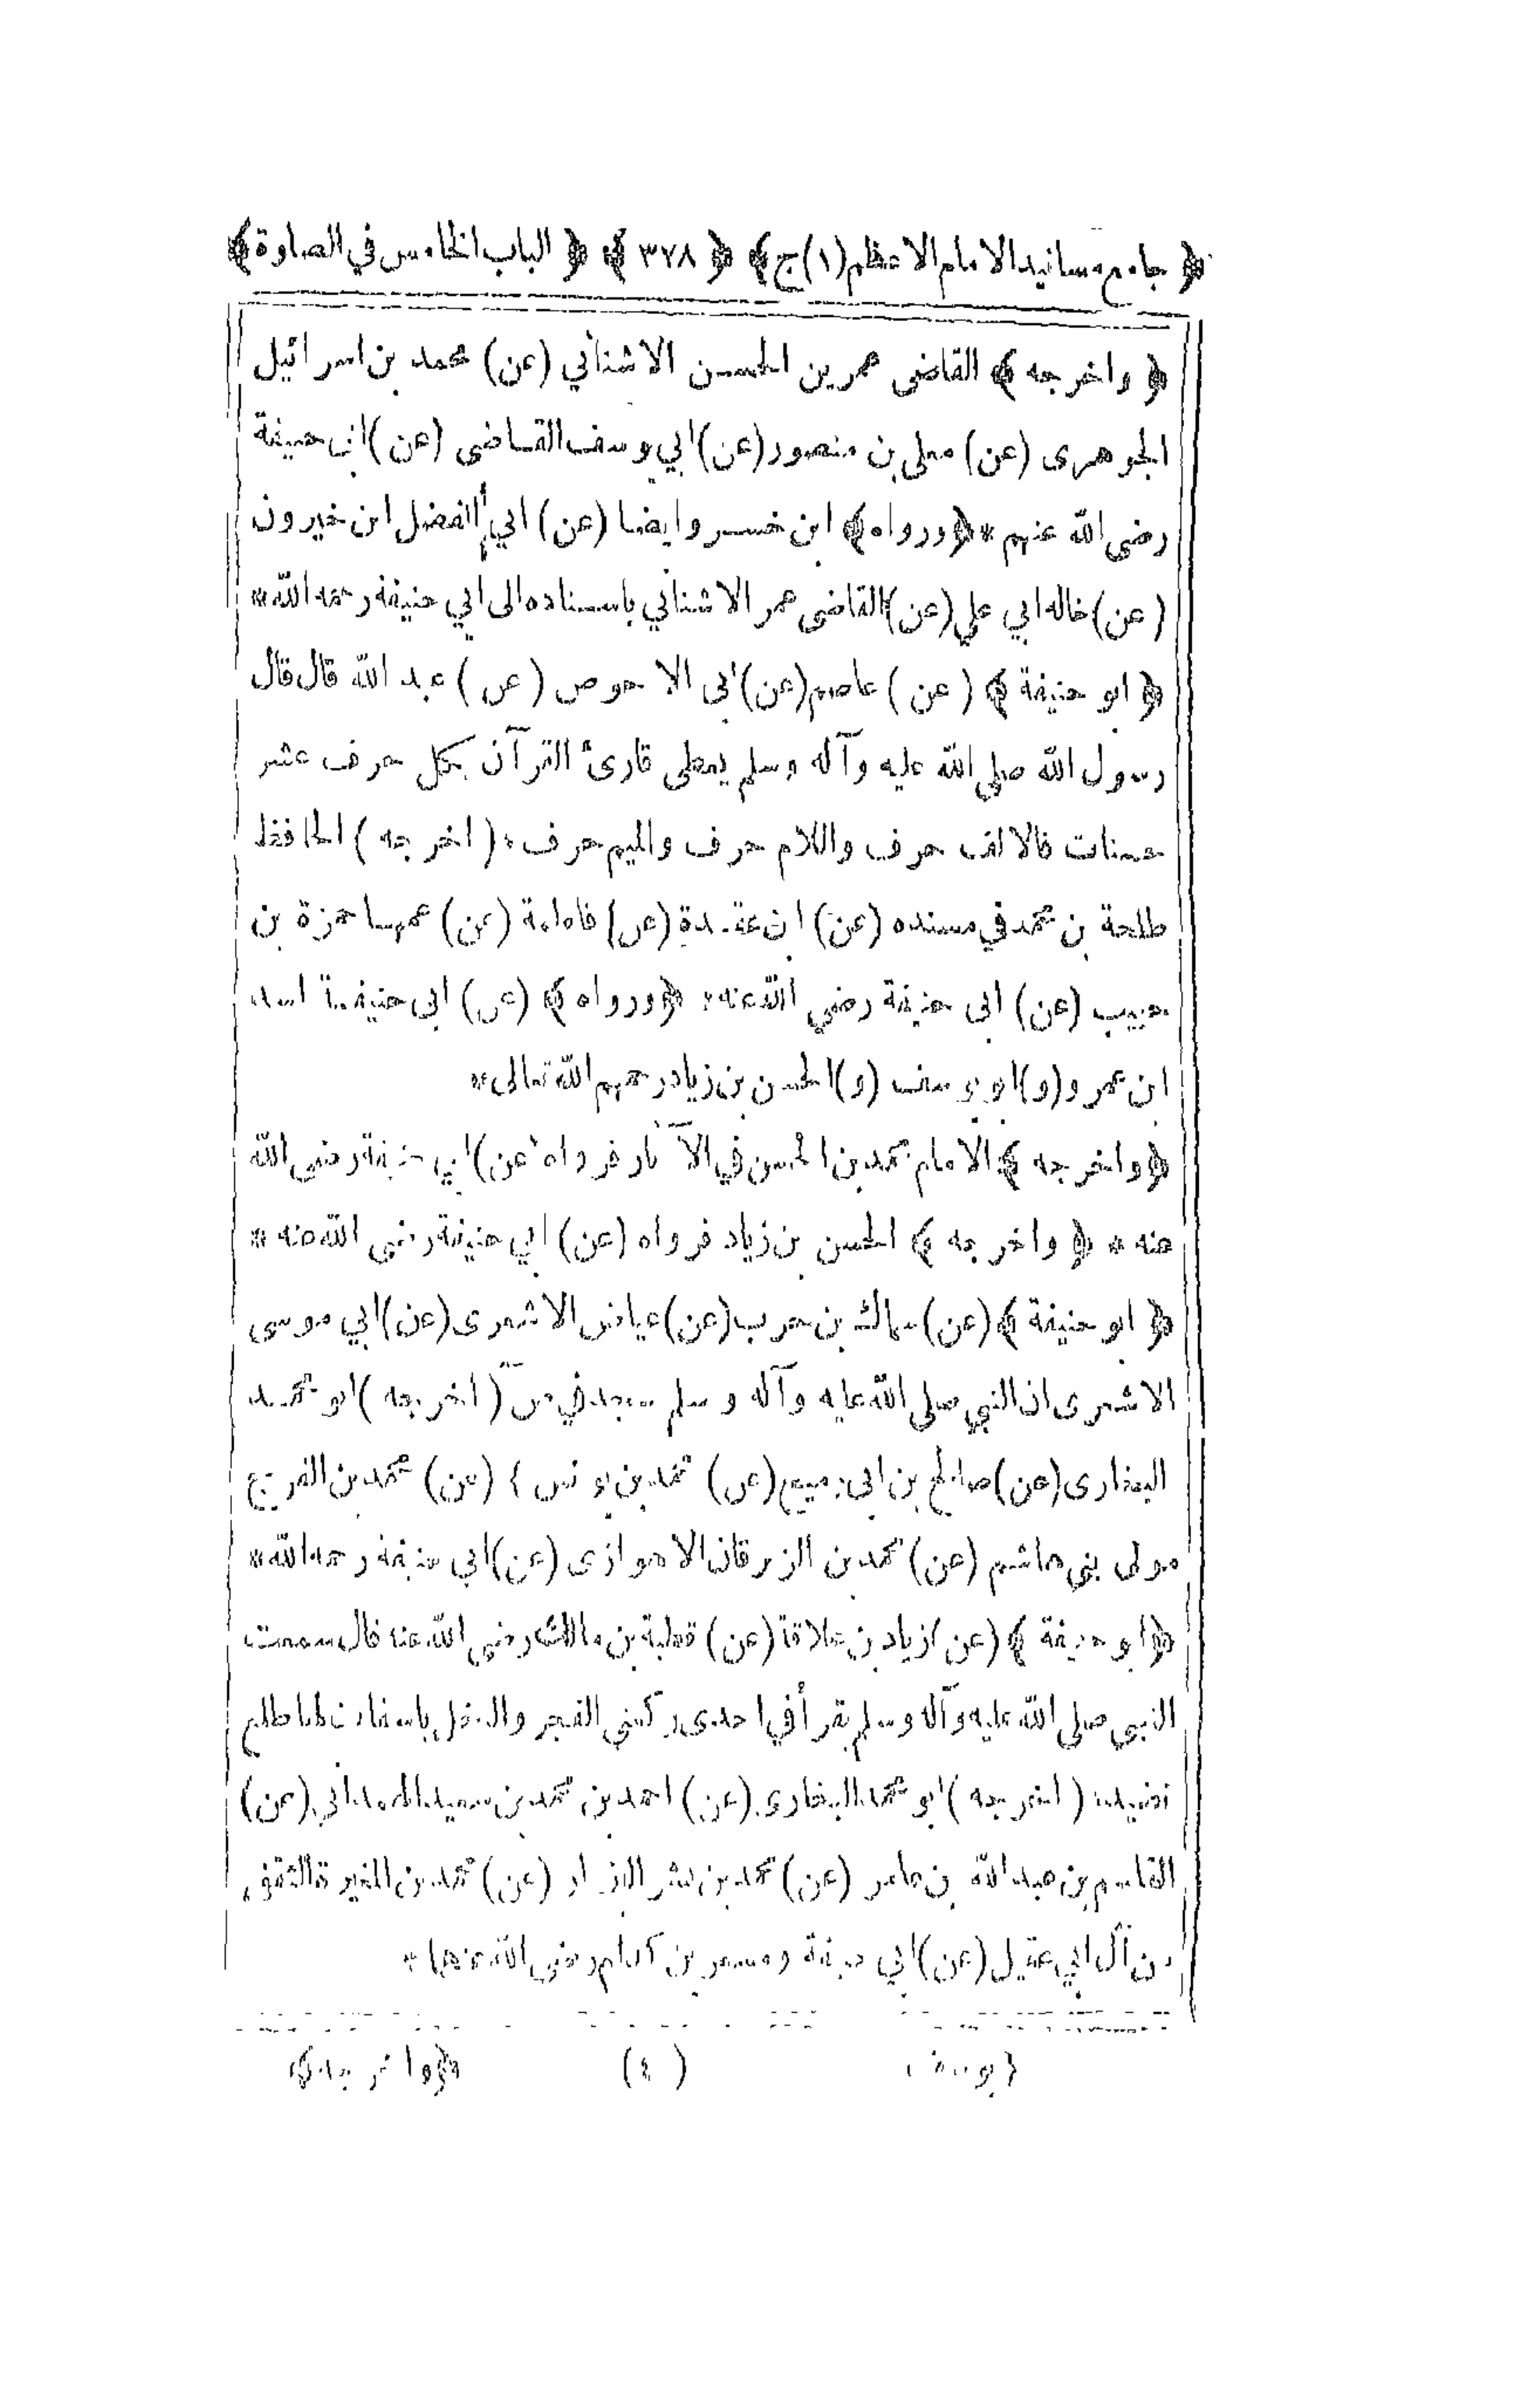 ﴿ جامع مسانيد الامام الاعظم (١) ج ﴾ ﴿ ٣٧٨ ﴾ ﴿ الباب الخامس في الصلوة ﴾
﴿ واخرجه ﴾ القاضى عمر بن الحسن الاشناني (عن) محمد بن اسرائيل
الجوهرى (عن) معلى بن منصور (عن) ابي يوسف القاضى (عن) ابى حنيفة
رضى الله عنهم * ﴿ ورواه ﴾ ابن خسرو ايضا (عن) ابي الفضل ابن خيرون
(عن) خاله ابي علي (عن) القاضى عمر الاشناني باسناده الى ابي حنيفة رحمه الله *
﴿ ابو حنيفة ﴾ (عن) عاصم (عن) ابى الاحوص (عن) عبد الله قال قال
رسول الله صلى الله عليه وآله وسلم يعطى قارئ القرآن بكل حرف عشر
حسنات فالالف حرف واللام حرف والميم حرف * (اخرجه) الحافظ
طلحة بن محمد في مسنده (عن) ابن عقدة (عن) فاطمة (عن) عمها حمزة بن
حبيب (عن) ابى حنيفة رضي الله عنه * ﴿ ورواه ﴾ (عن) ابى حنيفة اسد
ابن عمرو (و) ابو يوسف (و) الحسن بن زياد رحمهم الله تعالى *
﴿ واخرجه ﴾ الامام محمد بن الحسن في الآثار فرواه (عن) ابي حنيفة رضى الله
عنه * ﴿ واخرجه ﴾ الحسن بن زياد فرواه (عن) ابي حنيفة رضى الله عنه *
﴿ ابو حنيفة ﴾ (عن) سماك بن حرب (عن) عياض الاشعرى (عن) ابي موسى
الاشعرى ان النبي صلى الله عليه وآله وسلم سجد في ص (اخرجه) ابو محمد
البخارى (عن) صالح بن ابى رميح (عن) محمد بن يونس (عن) محمد بن الفرج
مولى بني هاشم (عن) محمد بن الزبرقان الاهوازى (عن) ابي حنيفة رحمه الله *
﴿ ابو حنيفة ﴾ (عن) زياد بن علاقة (عن) قطبة بن مالك رضي الله عنه قال سمعت
النبي صلى الله عليه وآله وسلم يقرأ في احدى ركعتي الفجر والنخل باسقات لها طلع
نضيد * (اخرجه) ابو محمد البخارى (عن) احمد بن محمد بن سعيد الهمداني (عن)
القاسم بن عبد الله بن عامر (عن) محمد بن بشر البزار (عن) محمد بن المغيرة الثقفي
من آل ابي عقيل (عن) ابي حنيفة ومسعر بن كدام رضي الله عنهما *
(يوسف) (٤) ﴿ واخرجه ﴾